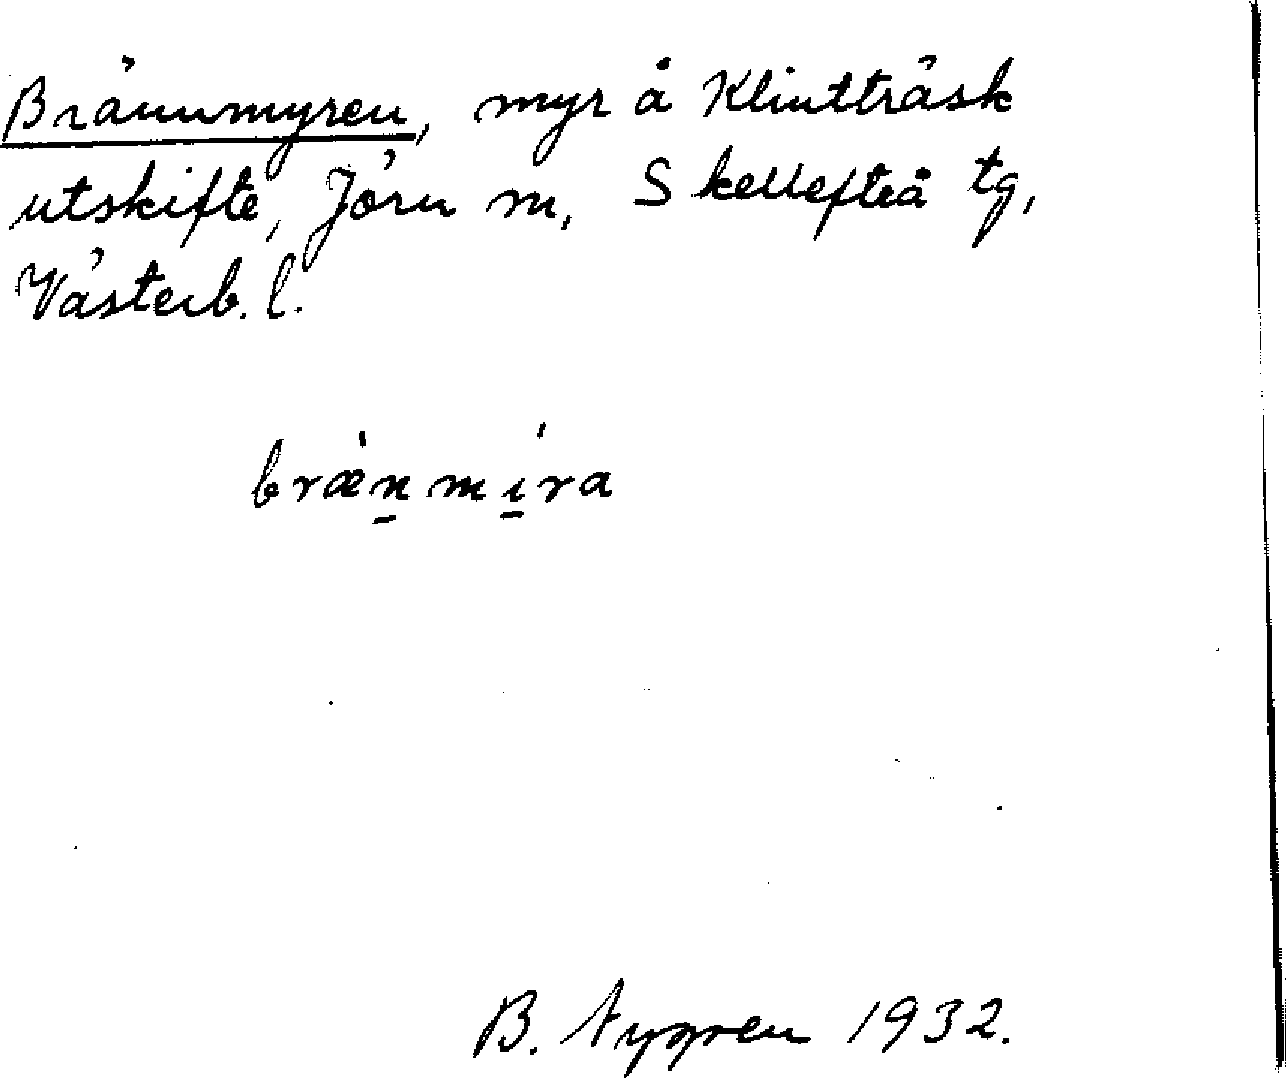 Brännmyren, myr å Klintträsk
utskifte, Jörn m, Skellefteå tg,
Västerb. l.
bræ̀n̠mi̠̍ra
B. Nygren 1932.